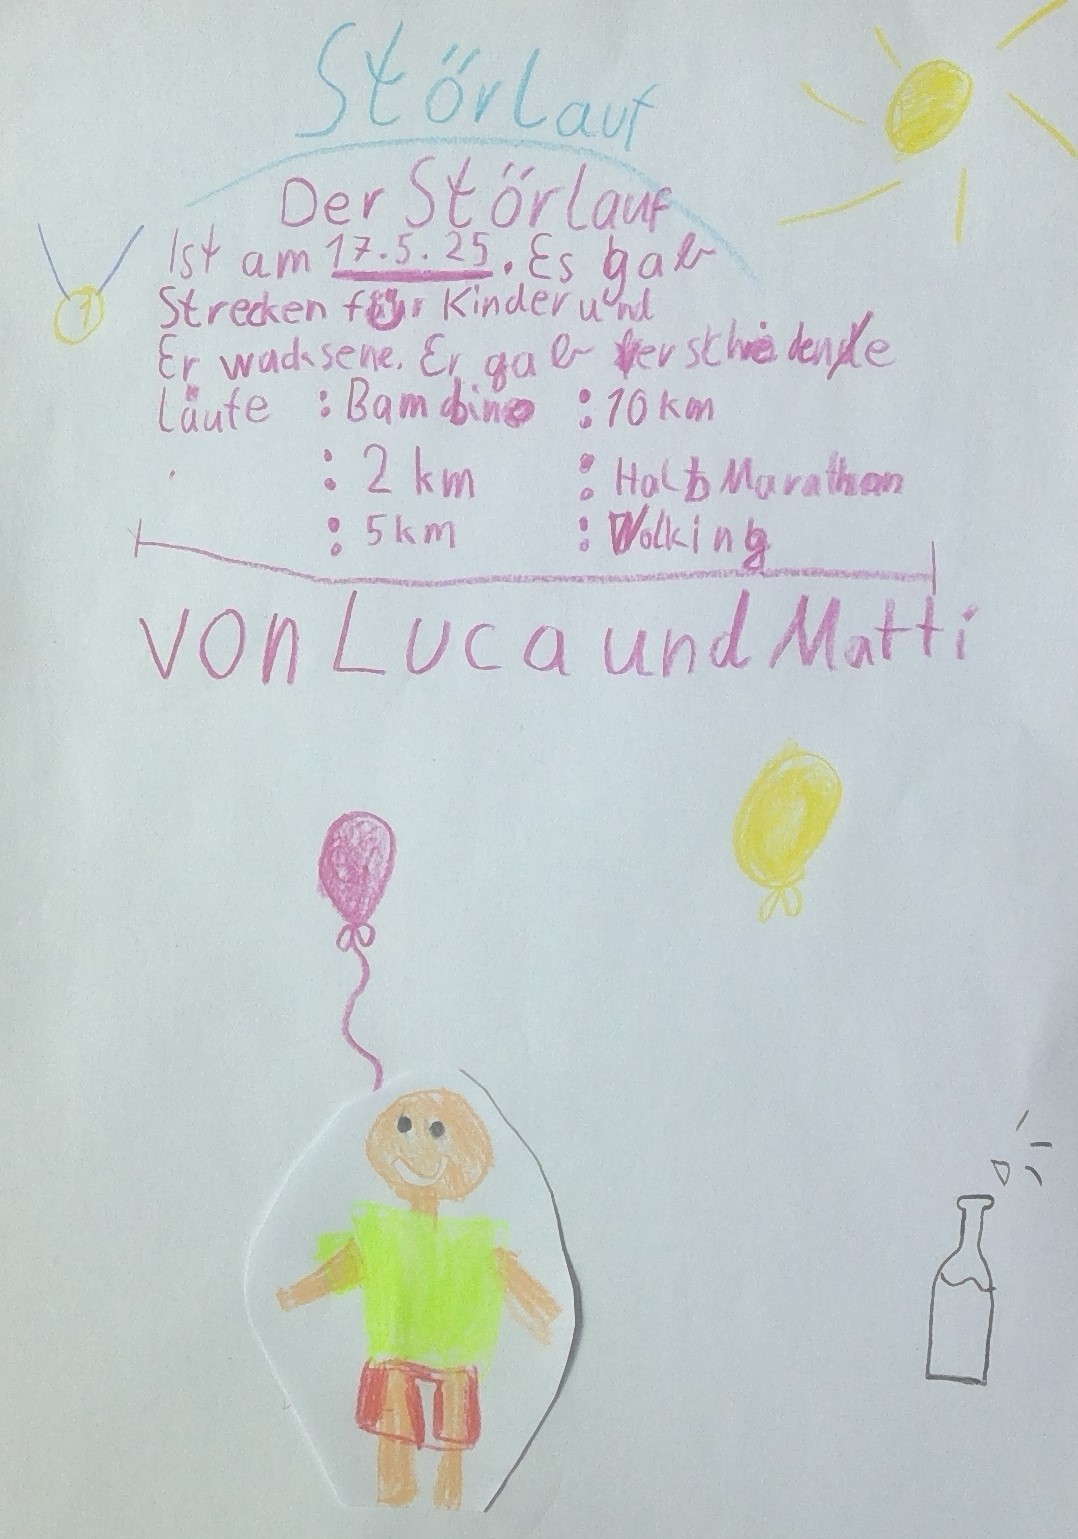 Störlauf
Der Störlauf
Ist am 17.5.25. Es gab
1
Strecken für Kinder und
Erwachsene. Er gab verschiedene
Läufe : Bambino : 10 km
: 2 km : Halb Marathon
: 5 km : Wolking
von Luca und Matti